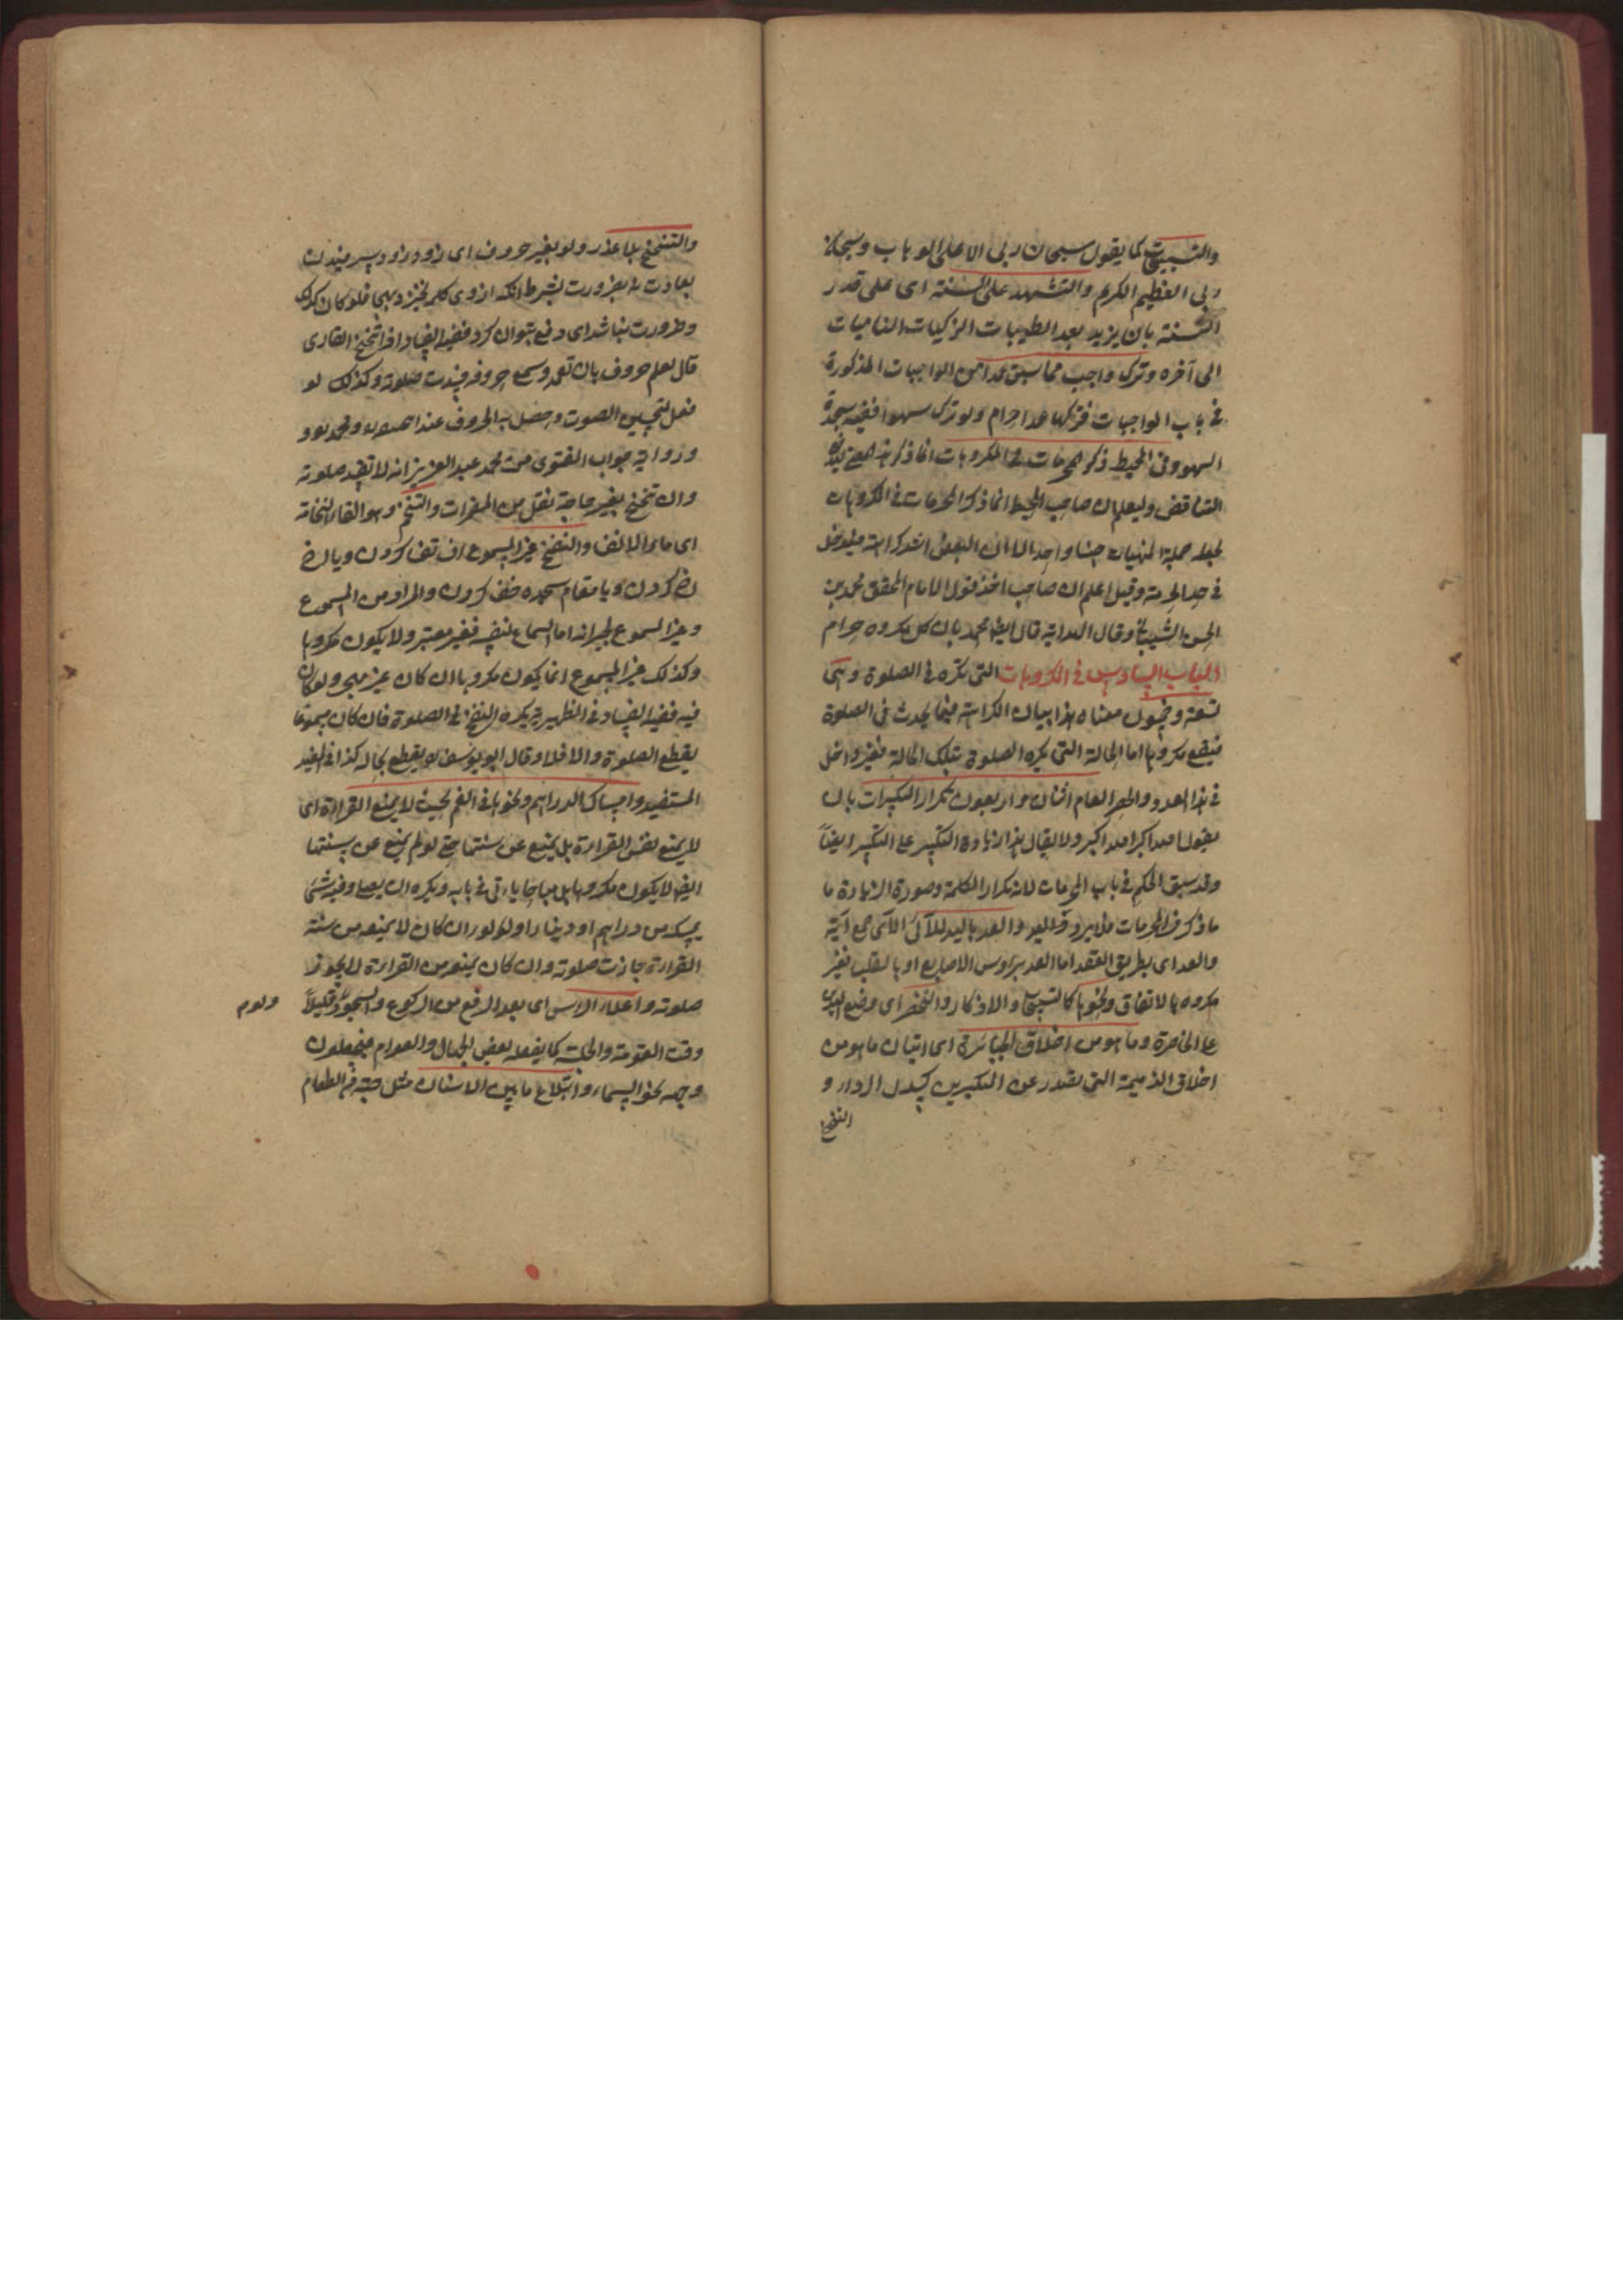 والتسبيحات كما يقول سبحان ربى الاعلى الوهاب وسبحان
ربى العظيم الكريم والتشهد على السنة اى على قدر
السنة بان يزيد بعد الطيبات الزكيات الناميات
الى آخره وترك واجب مما سبق عمدا من الواجبات المذكورة
فى باب الواجبات فتركها عمدا حرام ولو ترك سهوا ففيه سجدة
السهو وفى المحيط ذكر المحرمات فى المكروهات انما ذكر
التناقض وليعلم ان صاحب المحيط انما ذكر المحرمات فى المكروهات
لجعله جملة المنهيات جنسا واحدا الا ان البعض اشد كراهة فيدخل
فى حد الحرمة وقيل اعلم ان صاحب اخذ قول الامام المحقق محمد بن
الحسن الشيبانى وقال الهداية قال ايضا محمد بان كل مكروه حرام
الباب السادس فى المكروهات التى تكره فى الصلوة وهى
تسعة وخمسون معناه هذا بيان الكراهة فيما يحدث فى الصلوة
فيقع مكروها اما الحالة التى يكره الصلوة بتلك الحالة فغير داخل
فى هذا العدد والحصر العام اثنان واربعون تكرار التكبيرات بان
يقول الله اكبر الله اكبر ولا يقال هذا زيادة التكبير على التكبير ايضاً
وقد سبق الحكم فى باب المحرمات لانه تكرار الكلمة وصورة الزيادة ما
ما ذكر فى المحرمات فلا يرد والعد باليد للآى الآى جمع آية
والعد اى بطريق العقد اما العد برؤس الاصابع او بالقلب فغير
مكروه بالاتفاق ونحوها كالتسبيح والاذكار والتخصر اى وضع اليد
على الخاصرة وما هو من اخلاق الجبابرة اى اتيان ما هو من
اخلاق الذميمة التى تصدر عن المتكبرين كسدل الرداء و
التنحنح
والتنحنح بلا عذر ولو بغير حروف اى
بعادت نه بضرورت بشرط انكه ازوى كلمه نخيزد فلو كان كذلك
وضرورت نباشد اى دفع بتوان كرد ففيه الفساد اذا تنحنح القارى
قال بعلم حروف بان تعمد وسمع حروفه فسدت صلوته وكذلك لو
فعل لتحسين الصوت وحصل به الحروف عند
ورواية جواب الفتوى عن محمد عبد العزيز انه لا تفسد صلوته
وان تنحنح بغير حاجة نقل من المضمرات والتنخم وهو القاء النخامة
اى ماء الانف والنفخ غير المسموع اف تف كردن ويا
كردن ويا مقام سجده خف كردن والمراد من المسموع
وغير المسموع لجيرانه اما السماع لنفسه فغير معتبر ولا يكون مكروها
وكذلك غير المسموع انما يكون مكروها ان كان غير ولو كان
فيه ففيه الفساد وفى الظهيرية يكره النفخ فى الصلوة فان كان مسموعا
يقطع الصلوة والا فلا وقال ابو يوسف لو يقطع بحاله كذا فى المفيد
المستفيد وامساك الدراهم ونحوها فى الفم بحيث لا يمنع القراءة اى
لا يمنع نفس القراءة بل يمنع عن سنتها حتى لو لم يمنع عن سنتها
ايضا لا يكون مكروها بل مباحا ياتى فى بابه ويكره ان يصلى وفيه شئ
يمسكه من دراهم او دينار او لؤلؤ وان كان لا يمنعه من سنة
القراءة جازت صلوته وان كان يمنعه من القراءة لا يجوز
صلوته واعلاء الراس اى بعد الرفع من الركوع والسجود قليلاً
وقت القومة والجلسة كما يفعله بعض الجهال والعوام فيجعلون
وجهه نحو السماء وابتلاع ما بين الاسنان مثل حبة من الطعام
ولو لم